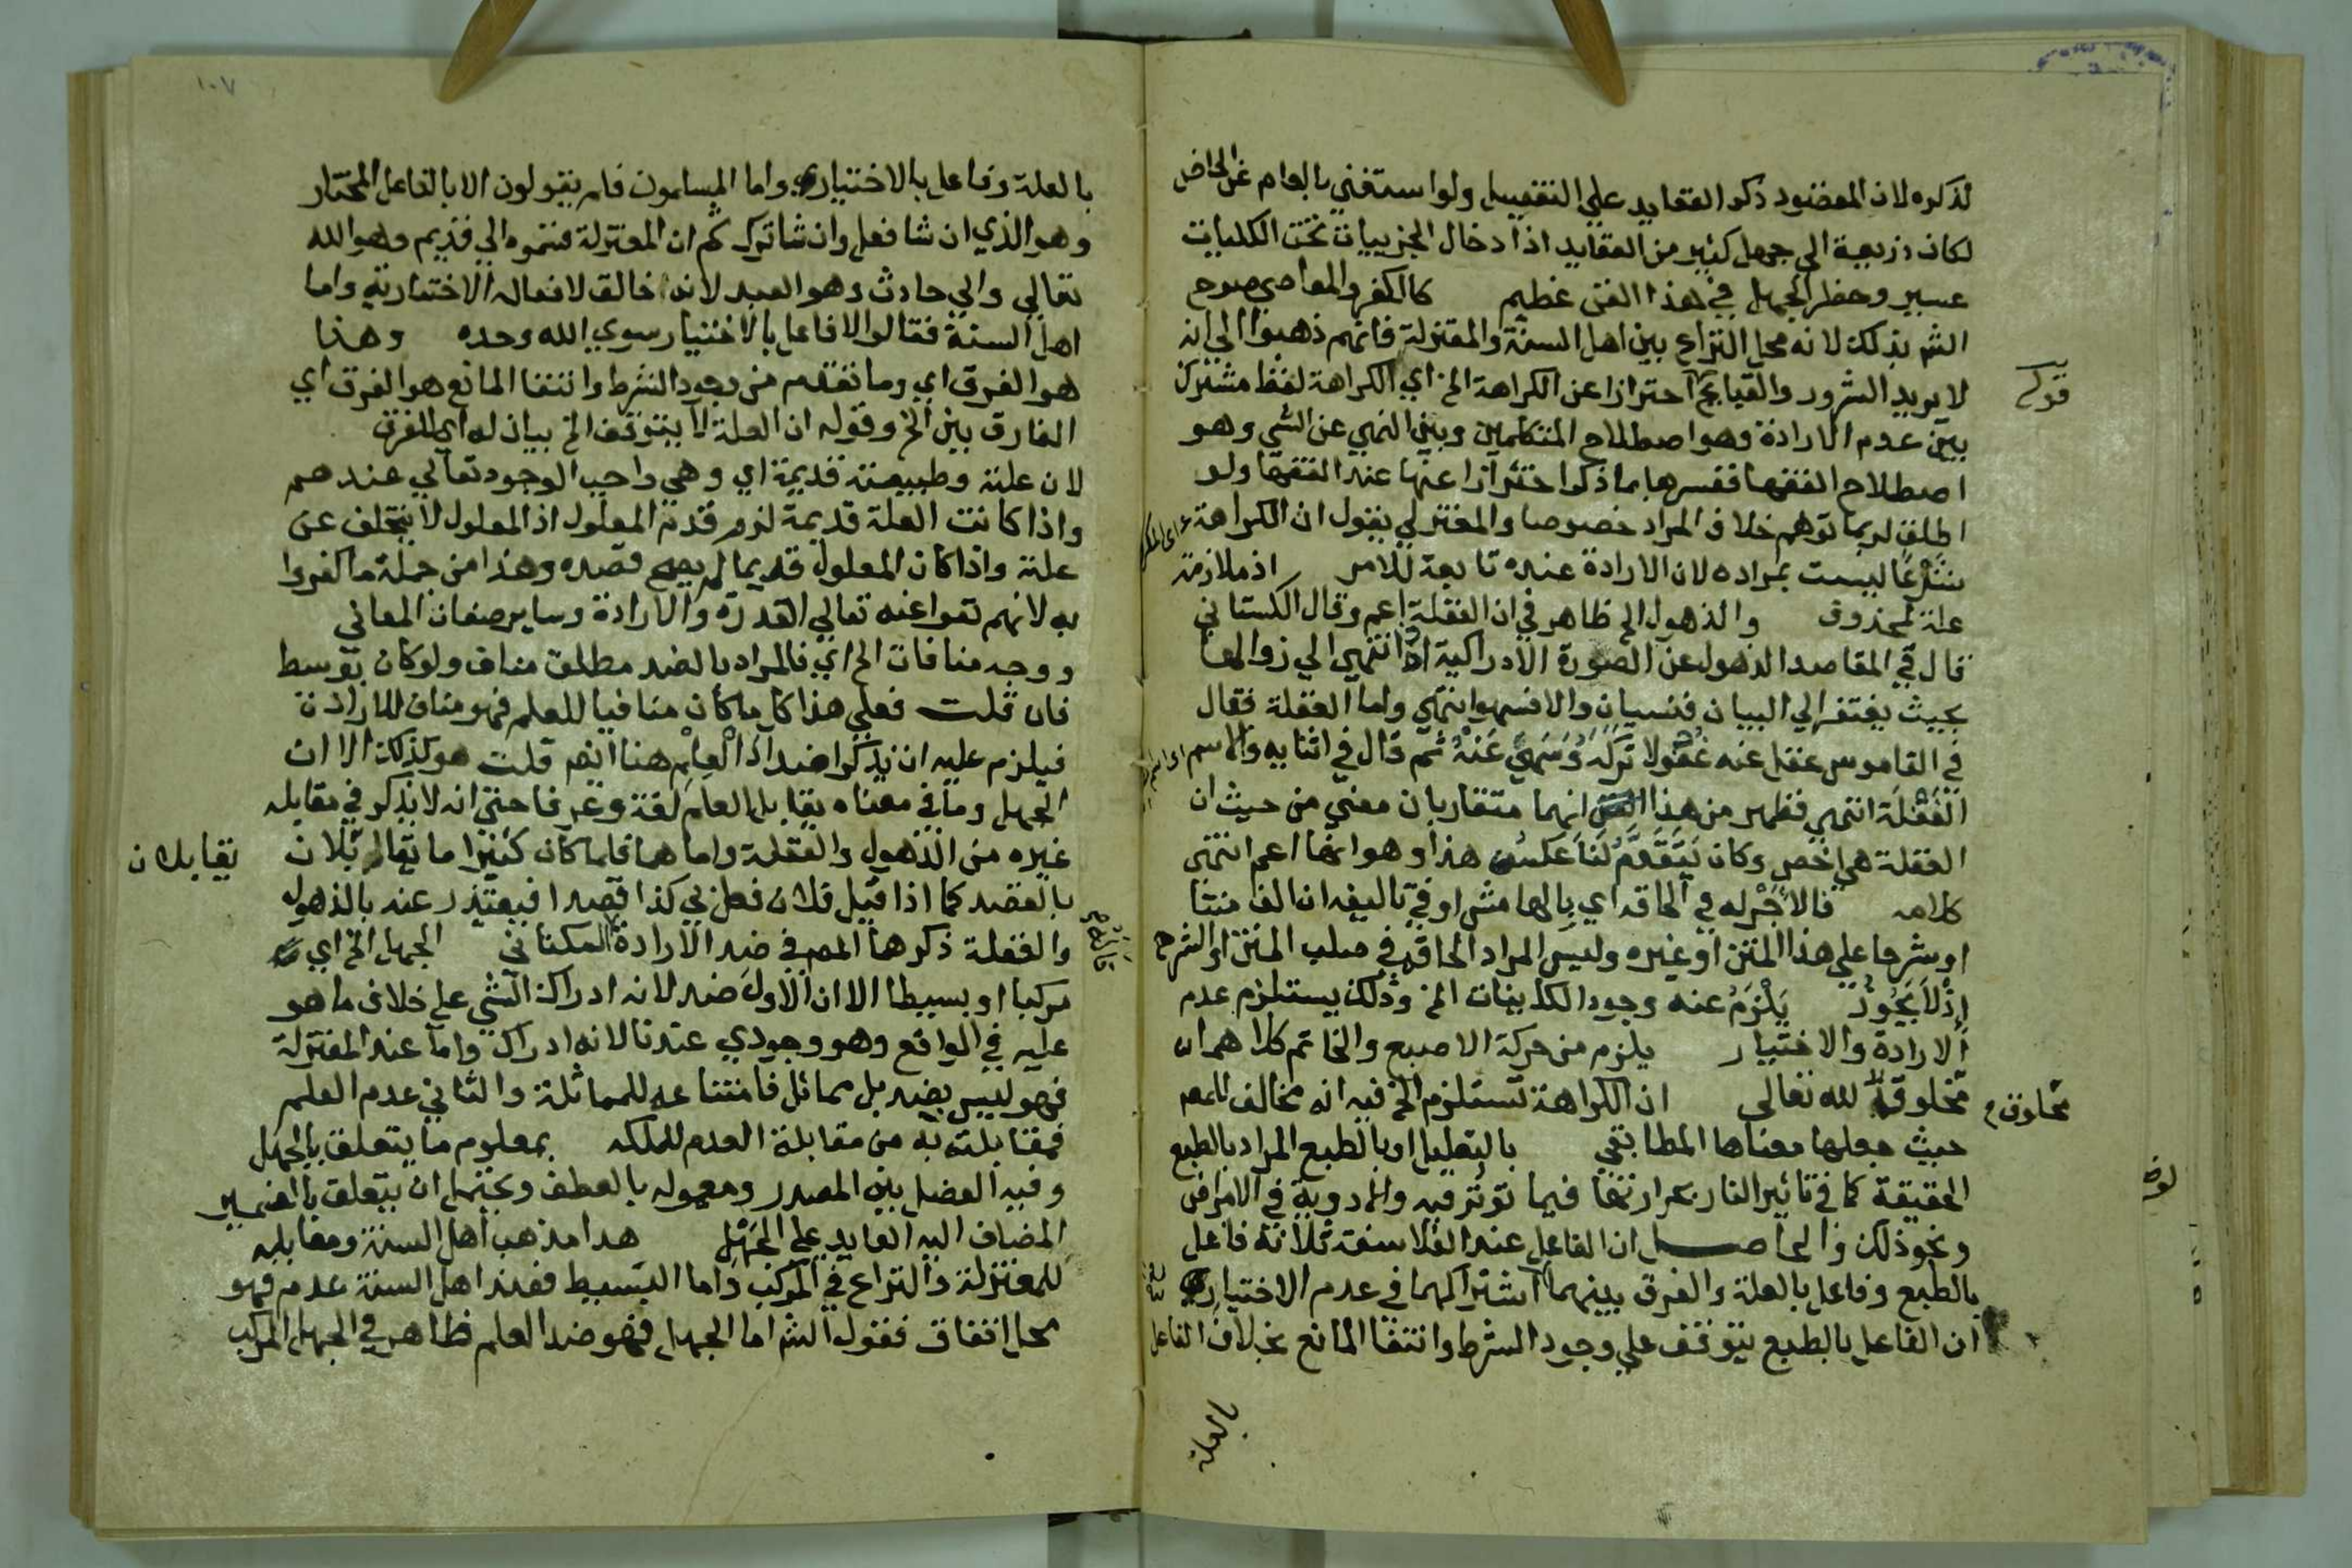 لذكره لان المقصود ذكر العقايد علي التفصيل ولو استغني بالعام عن الخاص
لكان ذريعة الي جهل كثير من العقايد اذ ادخال الجزييات تحت الكليات
عسير وخطر الجهل في هذا الفن عظيم كالكفر والمعاصي صرح
الشم بذلك لانه محل النزاع بين اهل السنة والمعتزلة فانهم ذهبوا الي انه
لا يريد الشرور والقبايح احترازا عن الكراهة الخ اي الكراهة لفظ مشترك
قوله
بين عدم الارادة وهو اصطلاح المتكلمين وبين النهي عن الشي وهو
اصطلاح الفقها ففسرها بما ذكر احترازا عنها عند الفقها ولو
اطلق لربما توهم خلاف المراد خصوصا والمعتزلي يقول ان الكراهة
شرعا ليست بمراده لان الارادة عنده تابعة للامر اذ ملازمة
علة لمحذوف والذهول الخ ظاهر في ان الغفلة اعم وقال الكستاني
قال في المقاصد الذهول عن الصورة الادراكية ان انتهي الي زوالها
بحيث يفتقر الي البيان فنسيان والا فسهو انتهي واما الغفلة فقال
في القاموس غفل عنه غفولا تركه وسهي عنه ثم قال في اثنايه والاسم
الغفلة انتهي فظهر من هذا انهما متقاربان معني من حيث ان
الغفلة هي اخص وكان يتقدم لنا عكس هذا وهو انها اعم انتهي
كلامه فالاجر له في الحاقه اي بالهامش او في تاليفه ان الف متنا
او شرحا علي هذا المتن او غيره وليس المراد الحاقه في صلب المتن او الشرح
اذ لا يجوز يلزم عنه وجود الكاينات الخ وذلك يستلزم عدم
الارادة والاختيار يلزم من حركة الاصبع والخاتم كلاهما
مخلوقة لله تعالي ان الكراهة تستلزم الخ فيه انه مخالف للمصم
مخلوق
حيث جعلها معناها المطابقي بالتعليل او بالطبع المراد بالطبع
الحقيقة كما في تاثير النار بحرارتها فيما توثر فيه والادوية في الامراض
ونحو ذلك والحاصل ان الفاعل عند الفلاسفة ثلاثة فاعل
بالطبع وفاعل بالعلة والفرق بينهما اشتراكهما في عدم الاختيار
ان الفاعل بالطبع يتوقف علي وجود الشرط وانتفا المانع بخلاف الفاعل
بالعلة
١٠٧
بالعلة وفاعل بالاختيار واما المسلمون فلم يقولون الا بالفاعل المختار
وهو الذي ان شا فعل وان شا ترك ثم ان المعتزلة قسموه الي قديم وهو الله
تعالي والي حادث وهو العبد لانه خالق لافعاله الاختيارية واما
اهل السنة فقالوا لا فاعل بالاختيار سوي الله وحده وهذا
هو الفرق اي وما تقدم من وجود الشرط وانتفا المانع هو الفرق اي
الفارق بين الخ وقوله ان العلة لا يتوقف الخ بيان له اي للفرق
لان علته وطبيعته قديمة اي وهي واجب الوجود تعالي عندهم
واذا كانت العلة قديمة لزم قدم المعلول اذ المعلول لا يتخلف عن
علته واذا كان المعلول قديما لم يصح قصده وهذا من جملة ما كفروا
به لانهم نفوا عنه تعالي القدرة والارادة وساير صفات المعاني
ووجه منافات الخ اي فالمراد بالضد مطلق مناف ولو كان بتوسط
فان قلت فعلي هذا كل ما كان منافيا للعلم فهو مناف للارادة
فيلزم عليه ان يذكر اضداد العلم هنا ايضم قلت هو كذلك الا ان
الجهل وما في معناه يقابل العلم لغة وعرفا حتي انه لا يذكر في مقابله
غيره من الذهول والغفلة واما هما فلما كان كثيرا ما
يقابلان
بالقصد كما اذا قيل فلان فعل بي كذا قصدا فيعتذر عنه بالذهول
والغفلة ذكرهما المصم في ضد الارادة الجهل الخ اي
مركبا او بسيطا الا ان الاول ضد لانه ادراك الشي علي خلاف ما هو
عليه في الواقع وهو وجودي عندنا لانه ادراك واما عند المعتزلة
فهو ليس بضد بل مماثل فامتناعه للمماثلة والثاني عدم العلم
فمقابلته به من مقابلة العدم للملكه بمعلوم ما يتعلق بالجهل
وفيه الفصل بين المصدر ومعموله بالعطف ويحتمل ان يتعلق بالضمير
المضاف اليه العايد علي الجهل هذا مذهب اهل السنة ومقابله
للمعتزلة والنزاع في المركب واما البسيط فعند اهل السنة عدم فهو
محل اتفاق فقول الشم اما الجهل فهو ضد العلم ظاهر في الجهل المركب